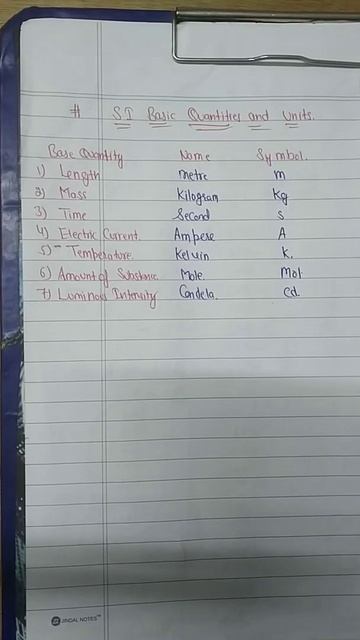 # SI Basic Quantities and Units.
Base Quantity Name Symbol.
1) Length metre m
2) Mass Kilogram Kg
3) Time Second s
4) Electric Current. Ampere A
5) Temperature. Kelvin K.
6) Amount of Substance. Mole. Mol
7) Luminous Intensity Candela. Cd.
JINDAL NOTES™